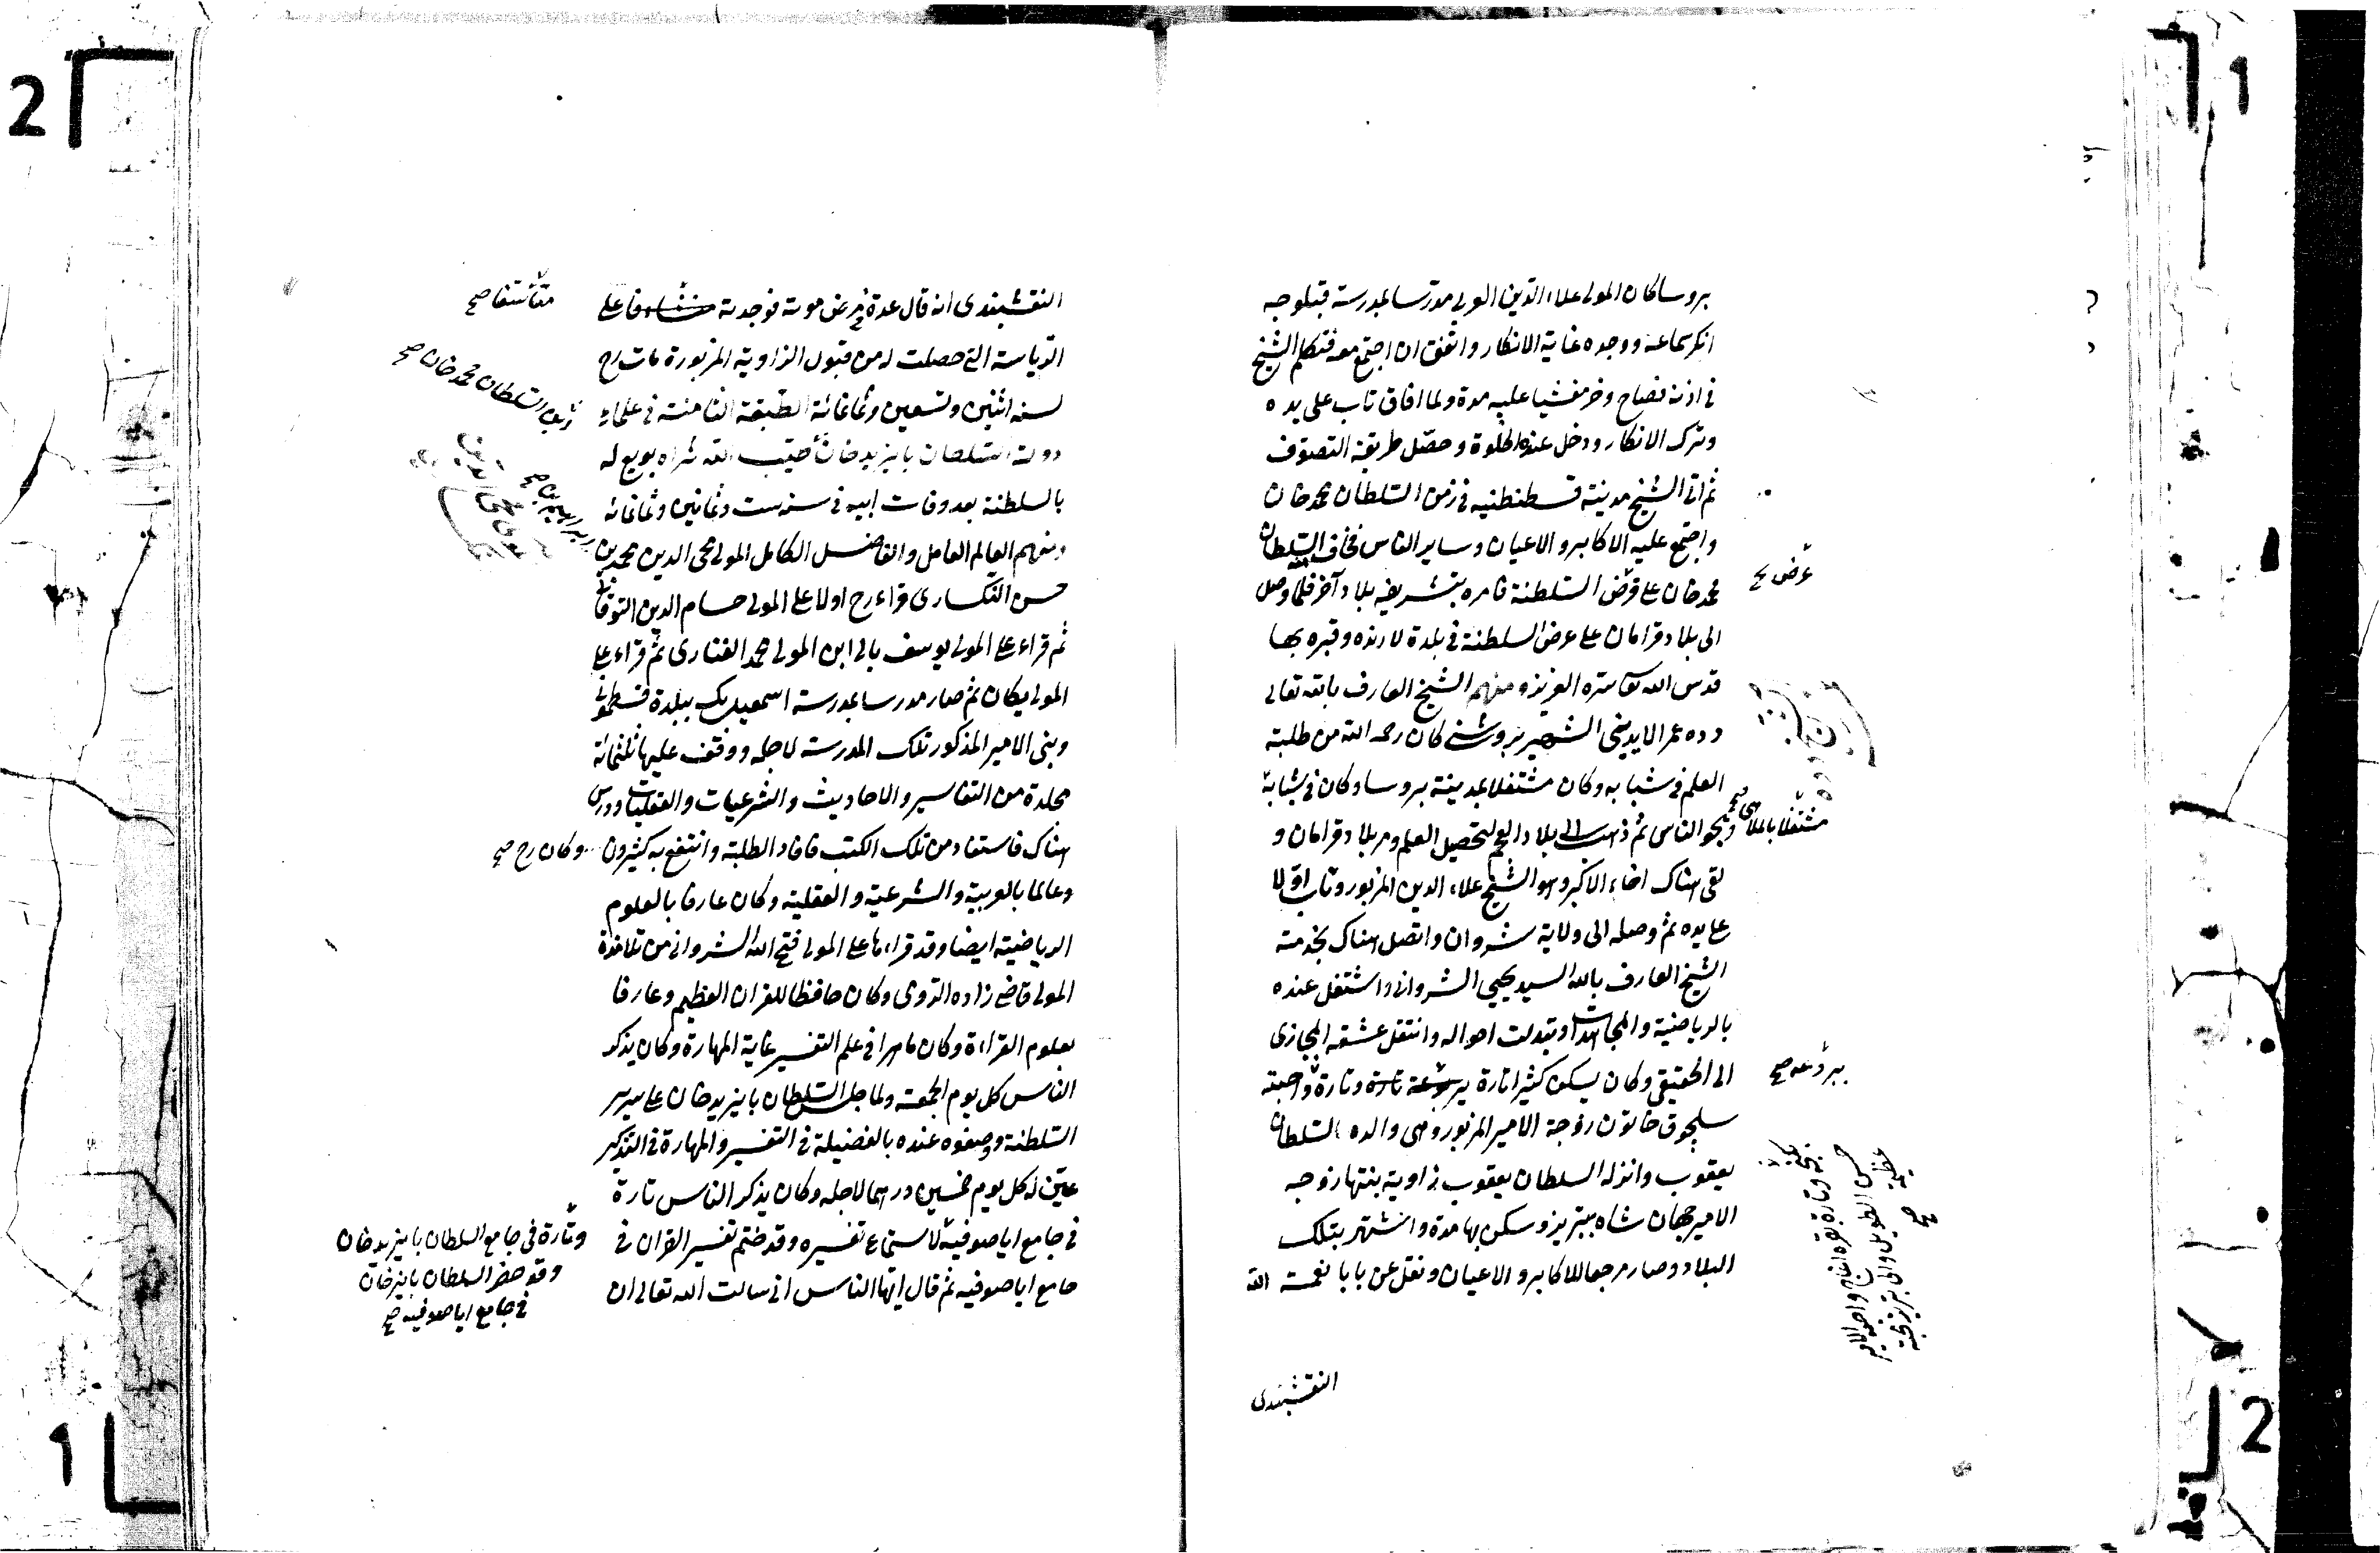 بروسا كان المولى علاء الدين العربي مدرسا بمدرسة قبلوجه
انكر سماعه ووجده غاية الانكار واتفق ان اجتمع معه فتكلم الشيخ
في اذنه فصاح وخر مغشيا عليه مدة ولما افاق تاب على يده
وترك الانكار ودخل عنده الخلوة وحصل طريقة التصوف
ثم اتى الشيخ مدينة قسطنطنيه في زمن السلطان محمد خان
واجتمع عليه الاكابر والاعيان وساير الناس فخاف السلطان
محمد خان على عرض السلطنة فامره بتشريفه بلاد آخر فلما وصل
الى بلاد قرامان على عرض السلطنة في بلدة لارنده وقبره بها
قدس الله تعا سره العزيز ومنهم الشيخ العارف بالله تعالى
دده عمر الايديني الشهير بروشني كان رحمه الله من طلبة
العلم في شبابه وكان مشتغلا بمدينة بروسا وكان في شبابه
ويهجو الناس ثم ذهب الى بلاد العجم لتحصيل العلم ومر بلاد قرامان و
لقى هناك اخاه الاكبر وهو الشيخ علاء الدين المزبور وتاب اولا
على يده ثم وصله الى ولاية شروان واتصل هناك بخدمة
الشيخ العارف بالله السيد يحيى الشرواني واشتغل عنده
بالرياضية والمجاهدات وتبدلت احواله وانتقل عشقه المجازى
الى الحقيقي وكان يسكن كثيرا تارة تارة وتارة واحبته
سلجوق خاتون زوجة الامير المزبور وهي والده السلطان
يعقوب وانزله السلطان يعقوب زاوية بنتها زوجه
الامير جهان شاه بتبريز وسكن بها مدة واشتهر بتلك
البلاد وصار مرجعا للاكابر والاعيان ونقل عن بابا نعمة الله
النقشبندى
عرض صح
مشتغلا بالملاهى صح
ببردعه صح
حسن الطويل والى تبريز محبة
عظيمة صح
النقشبندى انه قال عدة خبر عن موته فوجدته فا على
الرياسة التي حصلت له من قبول الزاوية المزبورة مات رح
لسنه اثنين وتسعين وثمانمائة الطبقة الثامنة في علماء
دولة السلطان بايزيد خان طيب الله ثراه بويع له
بالسلطنة بعد وفات ابيه في سنه ست وثمانين وثمانمائه
ومنهم العالم العامل والفاضل الكامل المولى محي الدين محمد بن
حسن النكسارى قراء رح اولا على المولى حسام الدين التوقاتي
ثم قراء على المولى يوسف بالى ابن المولى محمد الفنارى ثم قراء على
المولى يكان ثم صار مدرسا بمدرسة اسمعيل بك ببلدة قسطمونى
وبنى الامير المذكور تلك المدرسة لاجله ووقف عليها ثلثمائة
مجلدة من التفاسير والاحاديث والشرعيات والعقليات ودرس
هناك فاستفاد من تلك الكتب فافاد الطلبة وانتفع به كثيرون
وعالما بالعربية والشرعية والعقلية وكان عارفا بالعلوم
الرياضية ايضا وقد قراءها على المولى فتح الله الشرواني من تلامذة
المولى قاضي زاده الرومى وكان حافظا للقران العظيم وعارفا
بعلوم القراءة وكان ماهرا في علم التفسير غاية المهارة وكان يذكر
الناس كل يوم الجمعة ولما جلس السلطان بايزيد خان على سرير
السلطنة ووصفوه عنده بالفضيلة في التفسير والمهارة في التذكير
عين له كل يوم خمسين درهما لاجله وكان يذكر الناس تارة
في جامع اياصوفيه لاستماع تفسيره وقد ختم تفسير القران في
جامع اياصوفيه ثم قال ايها الناس اني سالت الله تعالى ان
متأسفا صح
السلطان محمد خان صح
وكان رح صح
وتارة في جامع السلطان بايزيد خان
وقد حضر السلطان بايزخان
في جامع اياصوفيه صح